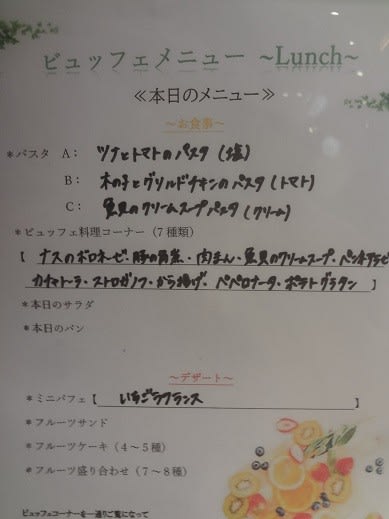 ビュッフェメニュー ~Lunch~
≪本日のメニュー≫
～お食事～
*パスタ A: ツナとトマトのパスタ(塩)
B: 木の子とグリルドチキンのパスタ(トマト)
C: 魚貝のクリームスープパスタ(クリーム)
*ビュッフェ料理コーナー(7種類)
【 ナスのボロネーゼ・豚の角煮・肉まん・魚貝のクリームスープ・ペンネアラビ
カチャトーラ・ストロガノフ・から揚げ・ペペロナータ・ポテトグラタン 】
*本日のサラダ
*本日のパン
～デザート～
*ミニパフェ【 いちごラフランス 】
*フルーツサンド
*フルーツケーキ(4～5種)
*フルーツ盛り合わせ(7～8種)
ビュッフェコーナーを一通りご覧になって